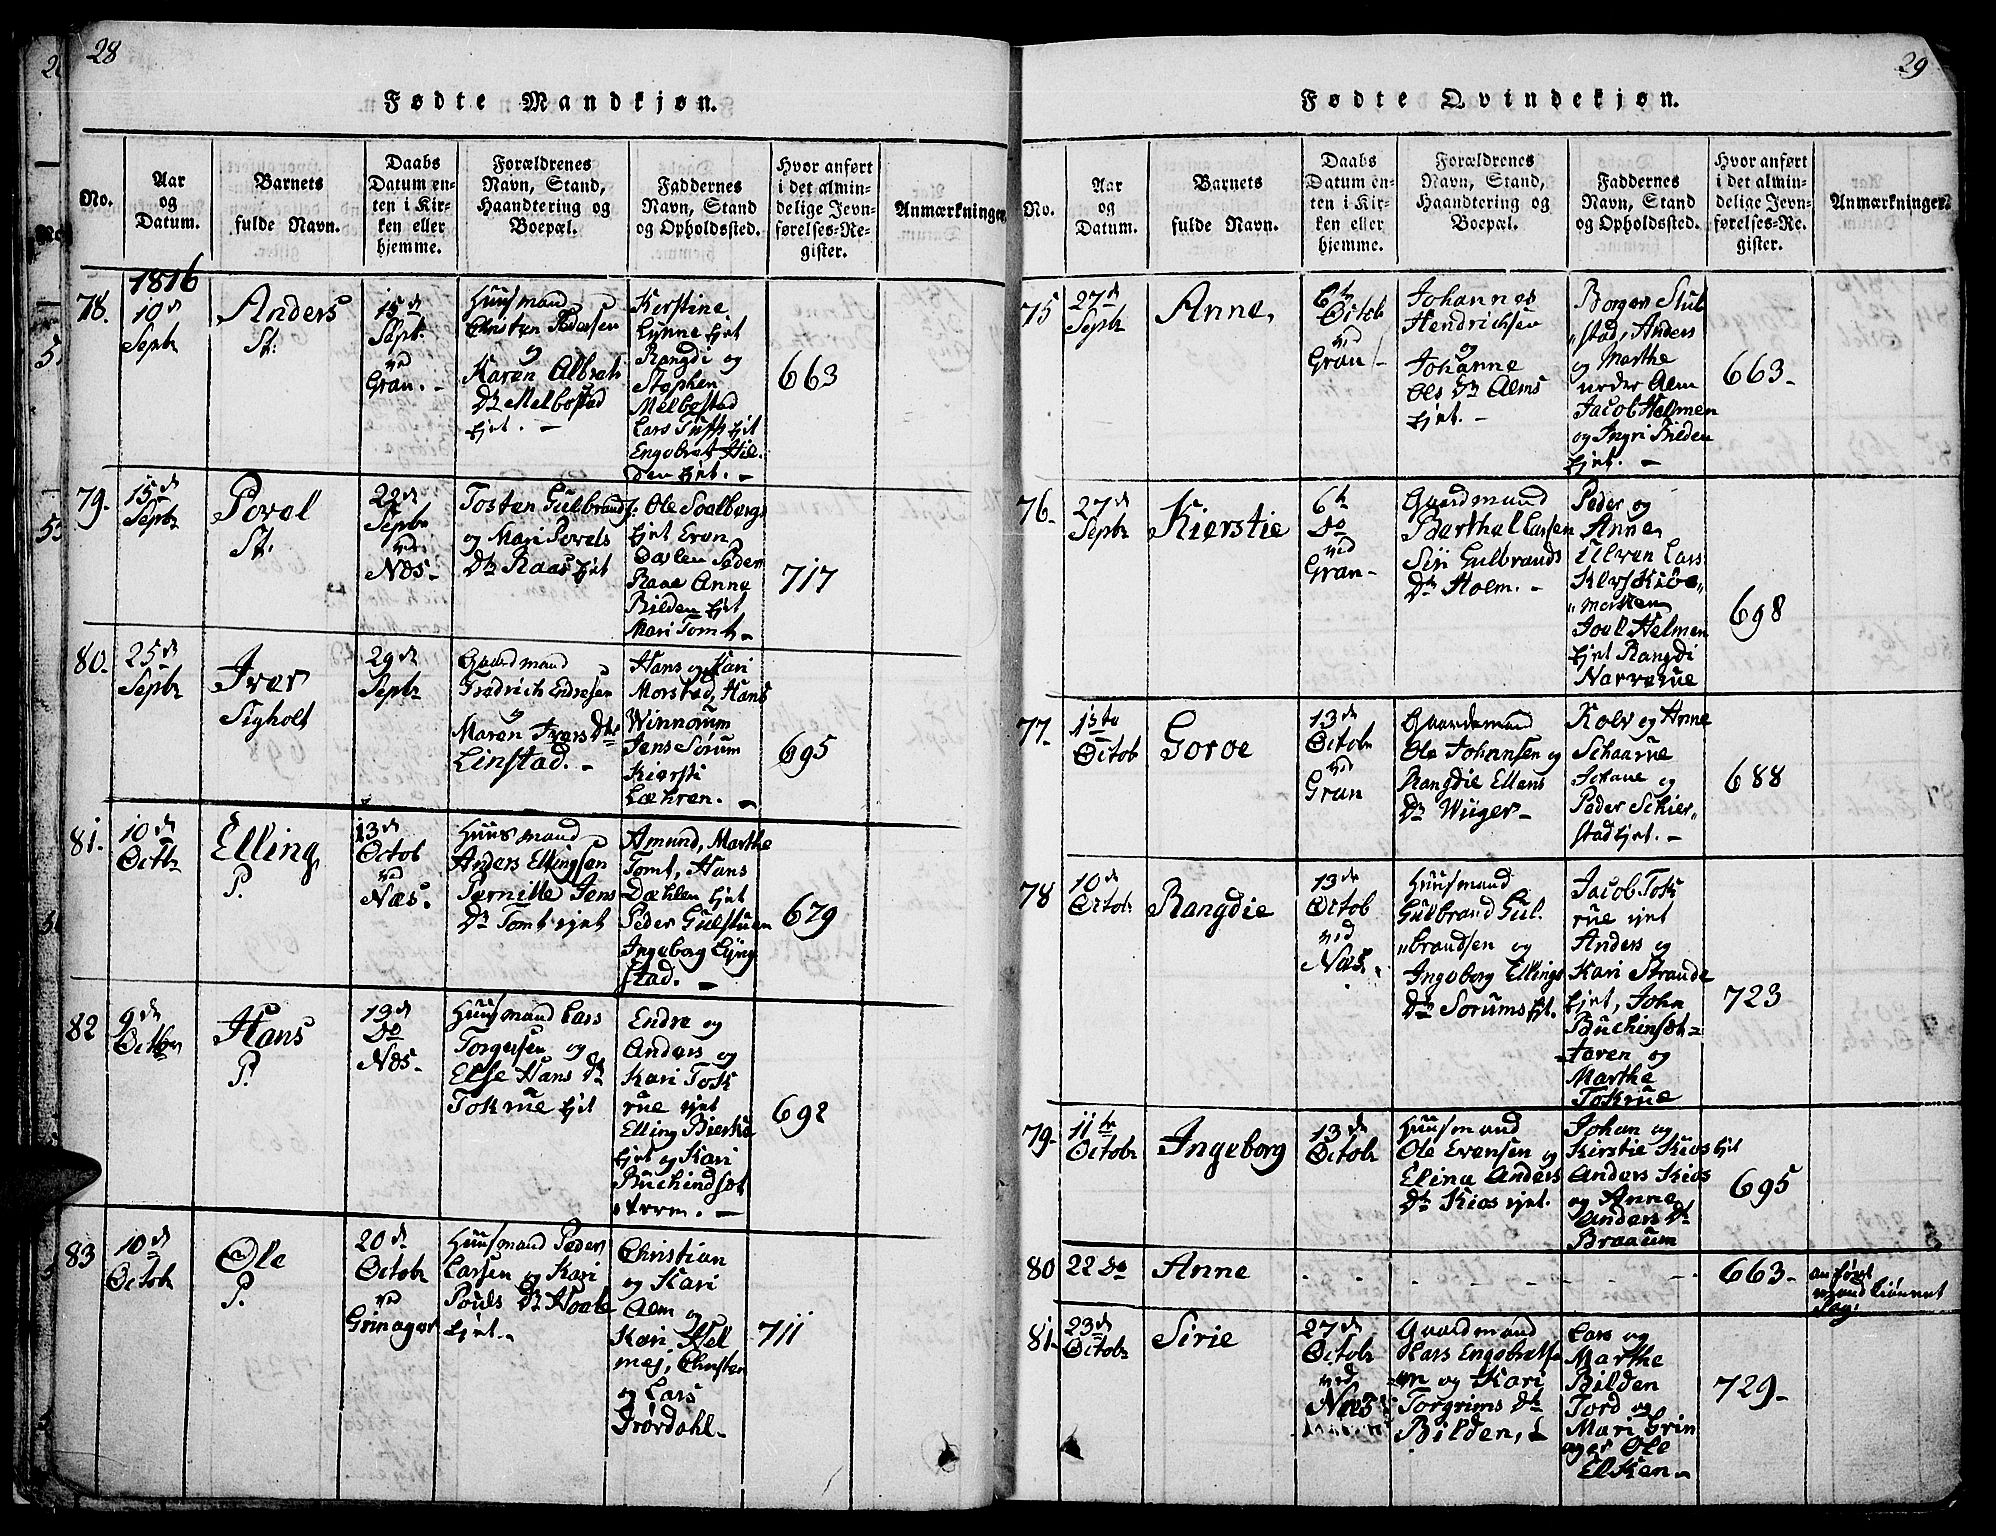 28
Fødte Mandkjøn.
No.
Aar
og
Datum.
Barnets
fulde Navn.
Daabs
Datum en-
ten i Kir-
ken eller
hjemme.
Forældrenes
Navn, Stand,
Haandtering og
Boepæl.
Faddernes
Navn, Stand
og Opholdssted.
Hvor anført
i det almin-
delige Jevn-
førelses-Re-
gister.
Anmærkninger
1816
78.
10d
Septbr
Anders
St:
15de
Sept.
ved
Gran.-
Huusmand
Christen Pedersen
og
Karen Albret
Dtr Melbostad
Ejet.-
Kerstine
Lynne Ejet
Rangdi og
Stephen
Melbostad
Lars Tufft Ejet
Engebret Hil-
den Ejet.-
663
79.
15de
Septbr
Povel
St:
22de
Septbr
ved
Næs-
Tosten Gulbrands:
og Mari Povels
Dtr Raas Ejet
Ole Soelbergs
Ejet Even
Dæhlen Peder
Raae Anne
Bilden Ejet
Mari Tomt-
717
80.
25de
Septbr
Iver
Sigholt
29de
Septbr
Gaardmand
Fredrich Endresen
og
Maren Ivers Dtr
Linstad.-
Hans og Kari
Morstad, Hans
Winnorum
Jens Sørum
Kiersti
Læhren.-
695
81.
10de
Octbr
Elling
P.
13de
Octob
ved
Næs.
Huusmand
Anders Ellingsen
Pernille Jens
Dtr Tomt ejet
Amund, Marthe
Tomt, Hans
Dæhlen Ejet
Peder Gulstuen
Ingeborg Lyng
stad.-
679
82
9de
Octbr
Hans
P.
13de
Do
Næs-
Huusmand Lars
Torgersen og
Else Hans Dtr
Tokrue Ejet
Endre og
Anders og
Kari Tok
rue ejet
Elling Bierke
Ejet og Kari
Buchindsæt
teren.-
692
83
10de
Octobr
Ole
P.
20de
Octobr
ved
Grinager
Huusmand Peder
Larsen og Kari
Pouls Dtr Hoale
Ejet.-
Christian
og Kari
Alm og
Kari Hel
mej, Christen
og Lars
Drørdahl-
711
29
Fødte Qvindekjøn.
No.
Aar
og
Datum.
Barnets
fulde Navn.
Daabs
Datum en-
ten i Kir-
ken eller
hjemme.
Forældrenes
Navn, Stand,
Haandtering og
Boepæl.
Faddernes
Navn, Stand
og Opholdssted.
Hvor anført
i det almin-
delige Jevn-
førelses-Re-
gister.
Anmærkninger.
75
27de
Septbr
Anne,
6te
Octob
ved
Gran
Johannes
Hendrichsen
og
Johanne
Ols Dtr Alms
Ejet.-
Borger Stub
stad, Anders
og Marthe
under Alm
Jacob Helmen
og Ingri Bilden
Ejet.-
663-
76-
27de
Septbr
Kierstie
6te
Do
ved
Gran-
Gaardmand
Barthel Larsen
Siri Gulbrands
Dtr Holm.-
Peder og
Anne
Ulven Lars
Klersk Kiøs
marken
Joel Helmen
Ejet Rangdi
Narverue
698
77-
1ste
Octob
Goroe
13de
Octobr
ved
Gran
Gaardemand
Ole Johansen og
Rangdie Ellans
Dtr Wiiger-
Kolv og Anne
Schaarue
Johane og
Peder Schier
stad Ejet.-
688
78
10de
Octobr
Rangdie
13de
Octob
ved
Næs.
Huusmand
Gulbrand Gul-
brandsen og
Ingeborg Ellings
Dtr Sorums Ejet.
Jacob Tok
rue ejet
Anders og
Kari Strande
Ejet, John
Buchinsæt=
taren og
Marthe
Tokrue
723
79-
11te
Octobr
Ingeborg
13de
Octobr
Huusmand
Ole Evensen og
Elina Anders
Dtr Kios ejet.
Johan og
Kirstie Kios Ejet
Anders Kios
og Anne
Anders Dtr
Braaum
695
80
22 Do
Anne
663-
anført
81-
23de
Octobr
Sirie
27de
Octobr
ved
Næs
Gaardmand
Hans Engebretse
en og Kari
Torgrims Dtr
Bilden,-
Lars og
Marthe
Bilden
Tord og
Mari Grin
ager Ole
Elken-
729-